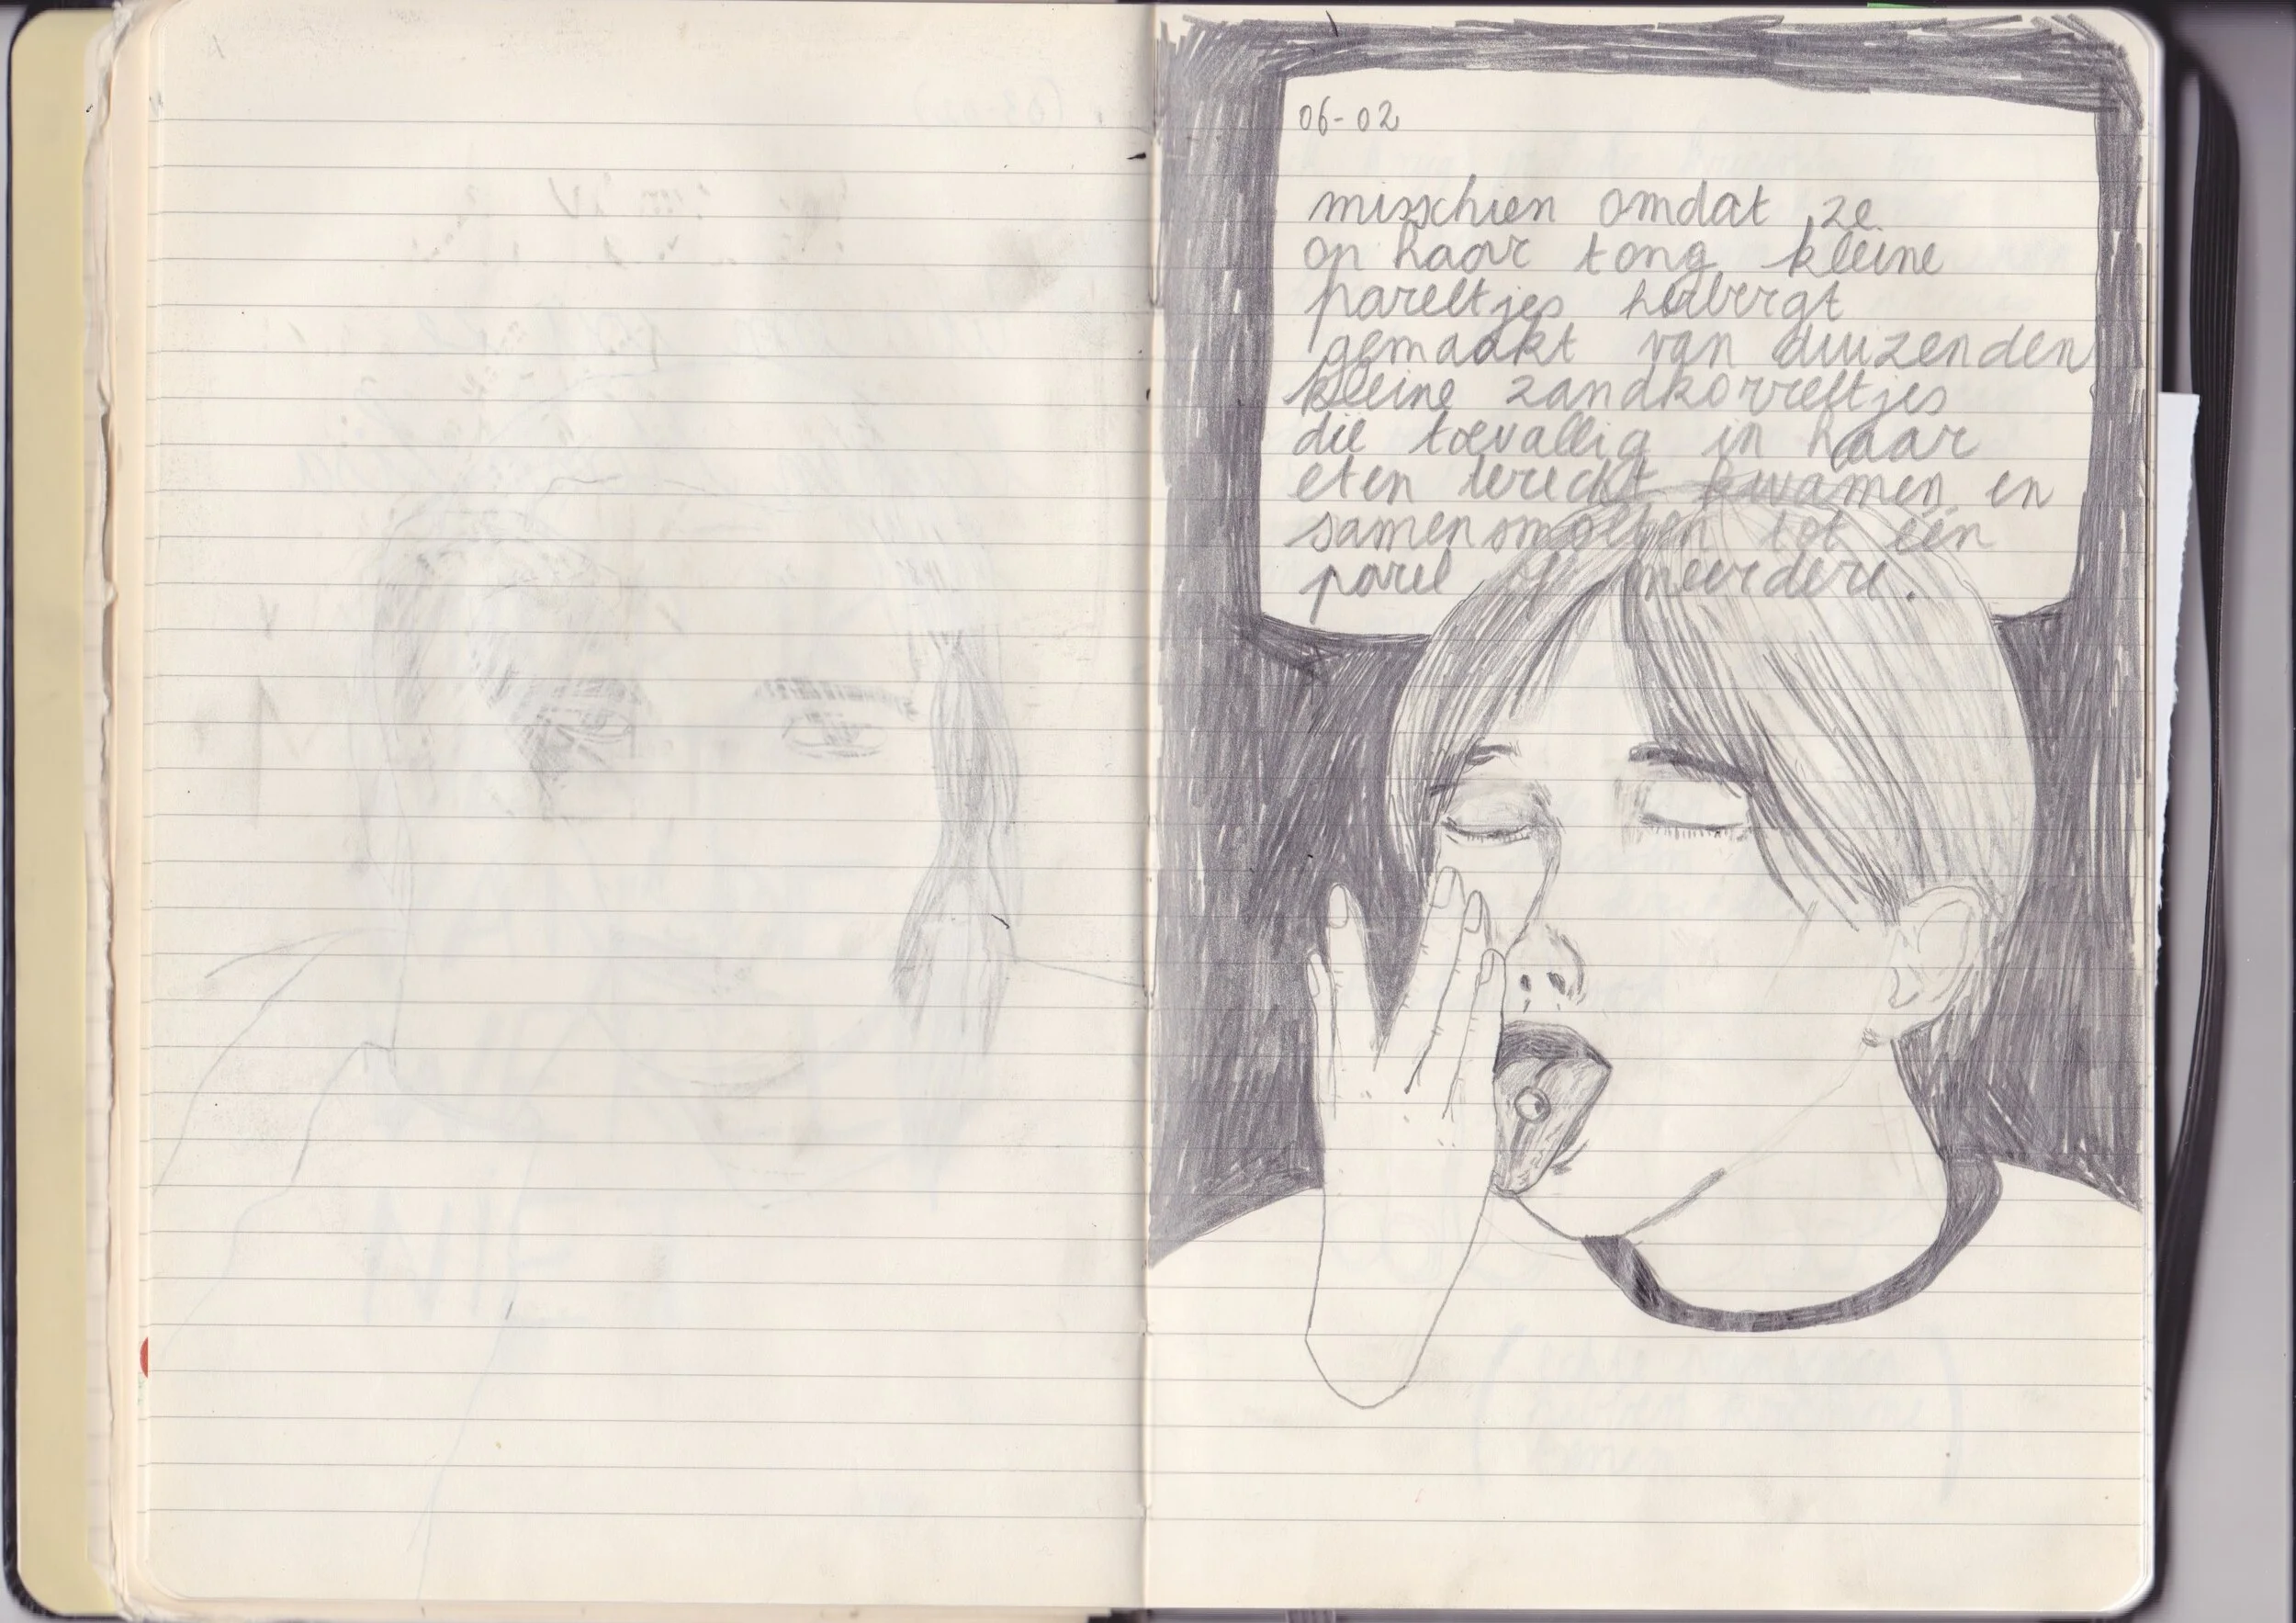 06-02
misschien omdat ze
op haar tong kleine
pareltjes herbergt
gemaakt van duizenden
kleine zandkorreltjes
die toevallig in haar
eten terecht kwamen en
samensmolten tot één
parel of meerdere.